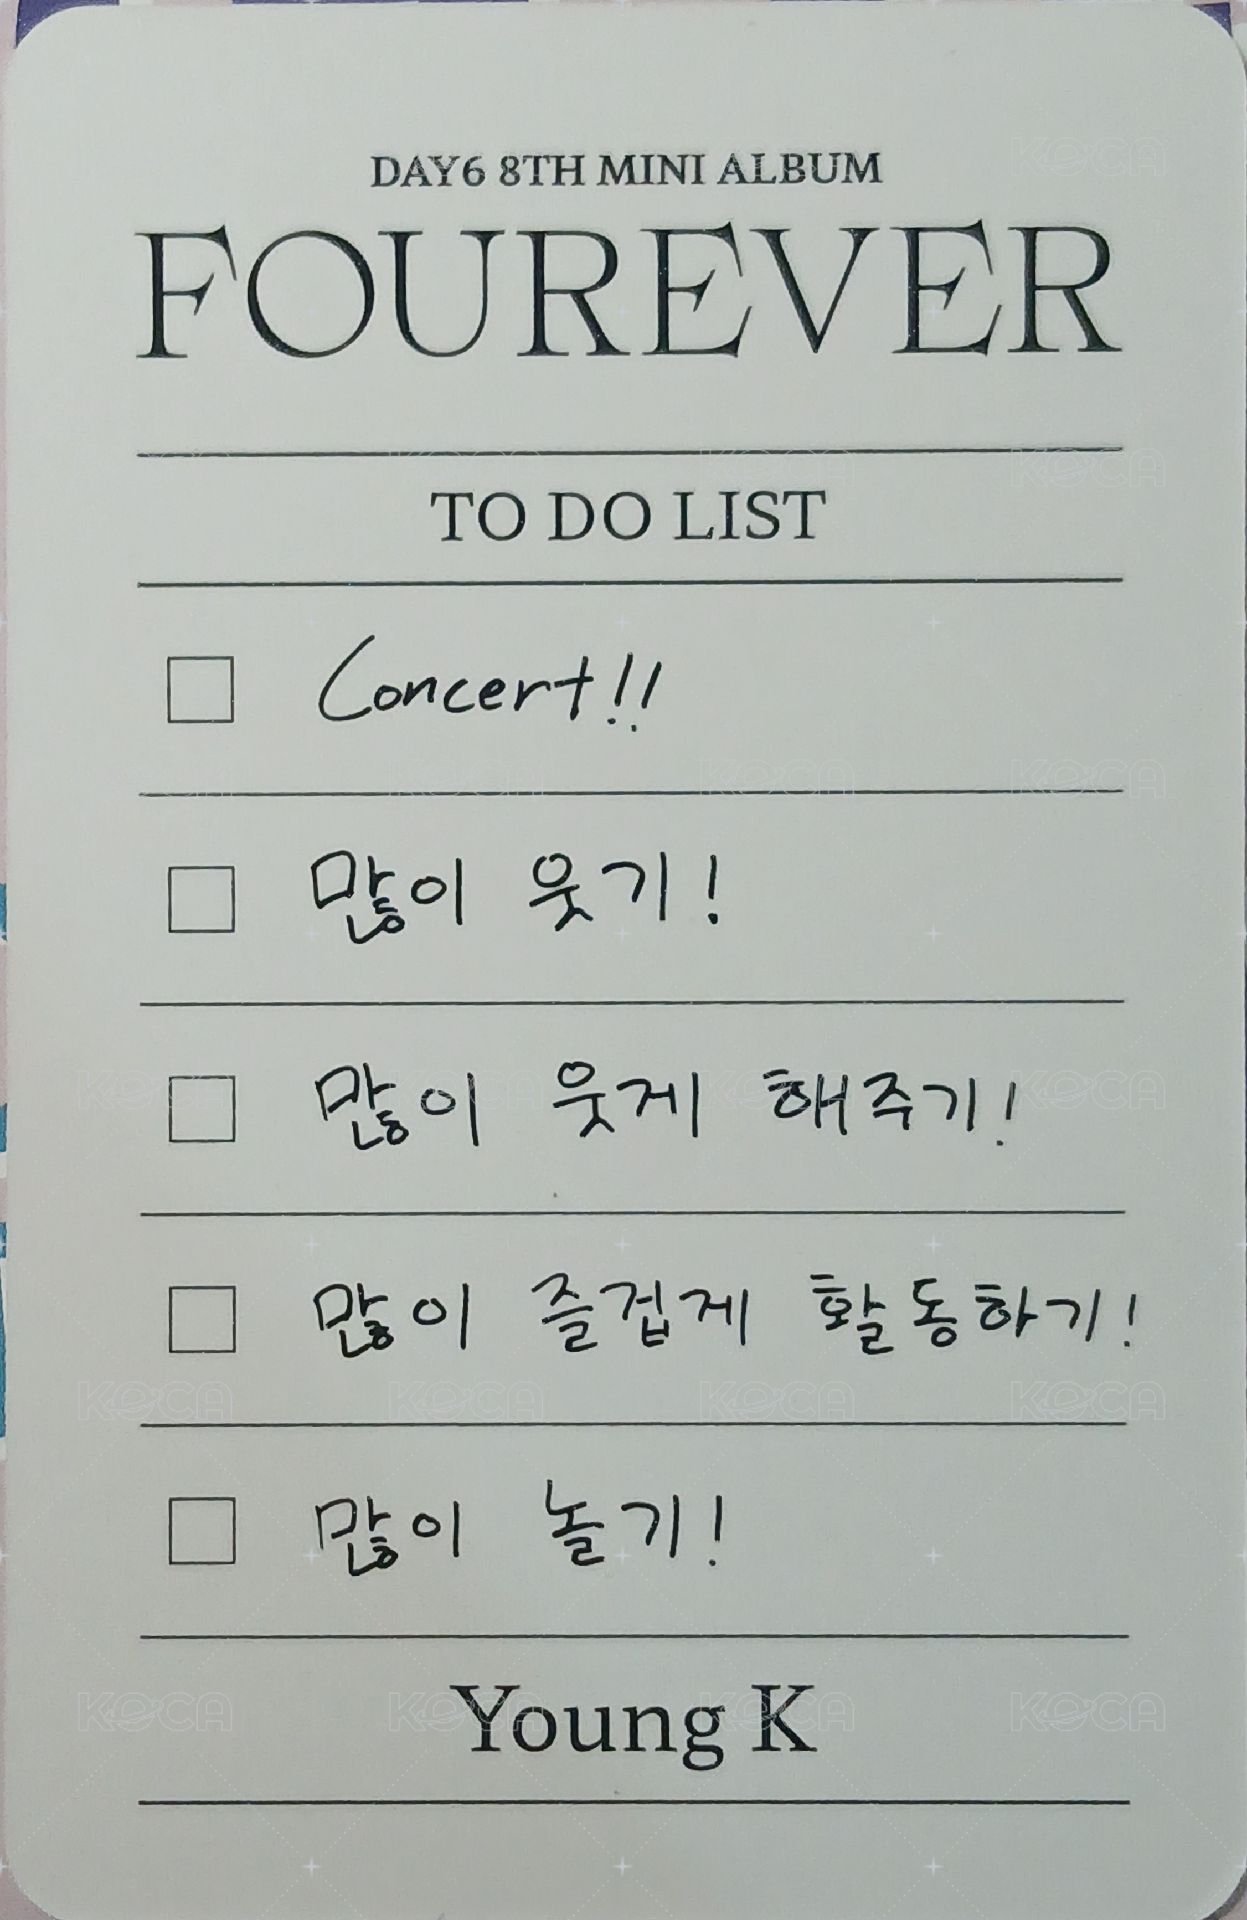 DAY6 8TH MINI ALBUM
FOUREVER
TO DO LIST
Concert!!
많이 웃기!
많이 웃게 해주기!
많이 즐겁게 활동하기!
많이 놀기!
Young K
KOCA